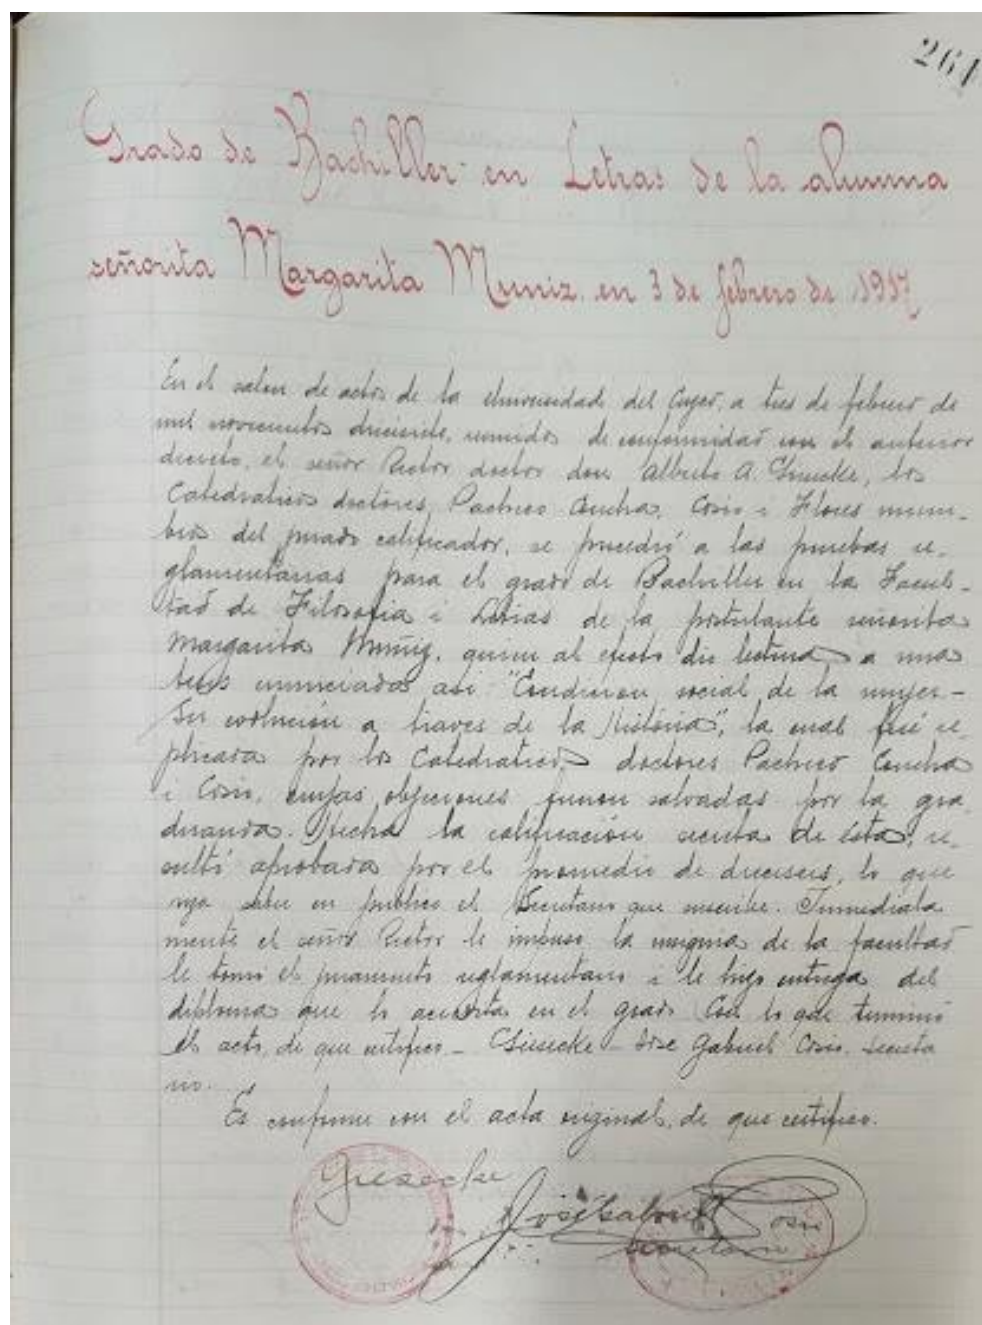 261
Grado de Bachiller en Letras de la alumna
señorita Margarita Muniz en 3 de febrero de 1917
En el salon de actos de la Universidad del Cuzco, a tres de febrero de
mil novecientos diecisiete, reunidos de conformidad con el anterior
decreto, el señor Rector doctor don Alberto A. Giesecke, los
Catedraticos doctores, Pacheco Concha, Cosio i Flores miem-
bros del jurado calificador, se procedió a las pruebas re-
glamentarias para el grado de Bachiller en la Facul-
tad de Filosofia i Letras de la postulante señorita
Margarita Muñiz, quien al efecto dio lectura a una
tesis enunciada asi "Condicion social de la mujer-
Su evolución a traves de la Historia", la cual fué re-
plicada por los Catedraticos doctores Pacheco Concha
i Cosio, cuyas objeciones fueron salvadas por la gra
duanda. Hecha la calificación secreta de ésta, re-
sultó aprobada por el promedio de dieciseis, lo que
hizo saber en publico el Secretario que suscribe. Inmediata
mente el señor Rector le impuso la insignia de la facultad
le tomó el juramento reglamentario i le hizo entrega del
diploma que lo acredita en el grado Con lo que terminó
el acto, de que certifico - Giesecke - Jose Gabriel Cosio. Secreta
rio.
Es conforme con el acta original, de que certifico.
Giesecke
José Gabriel Cosio
Secretario